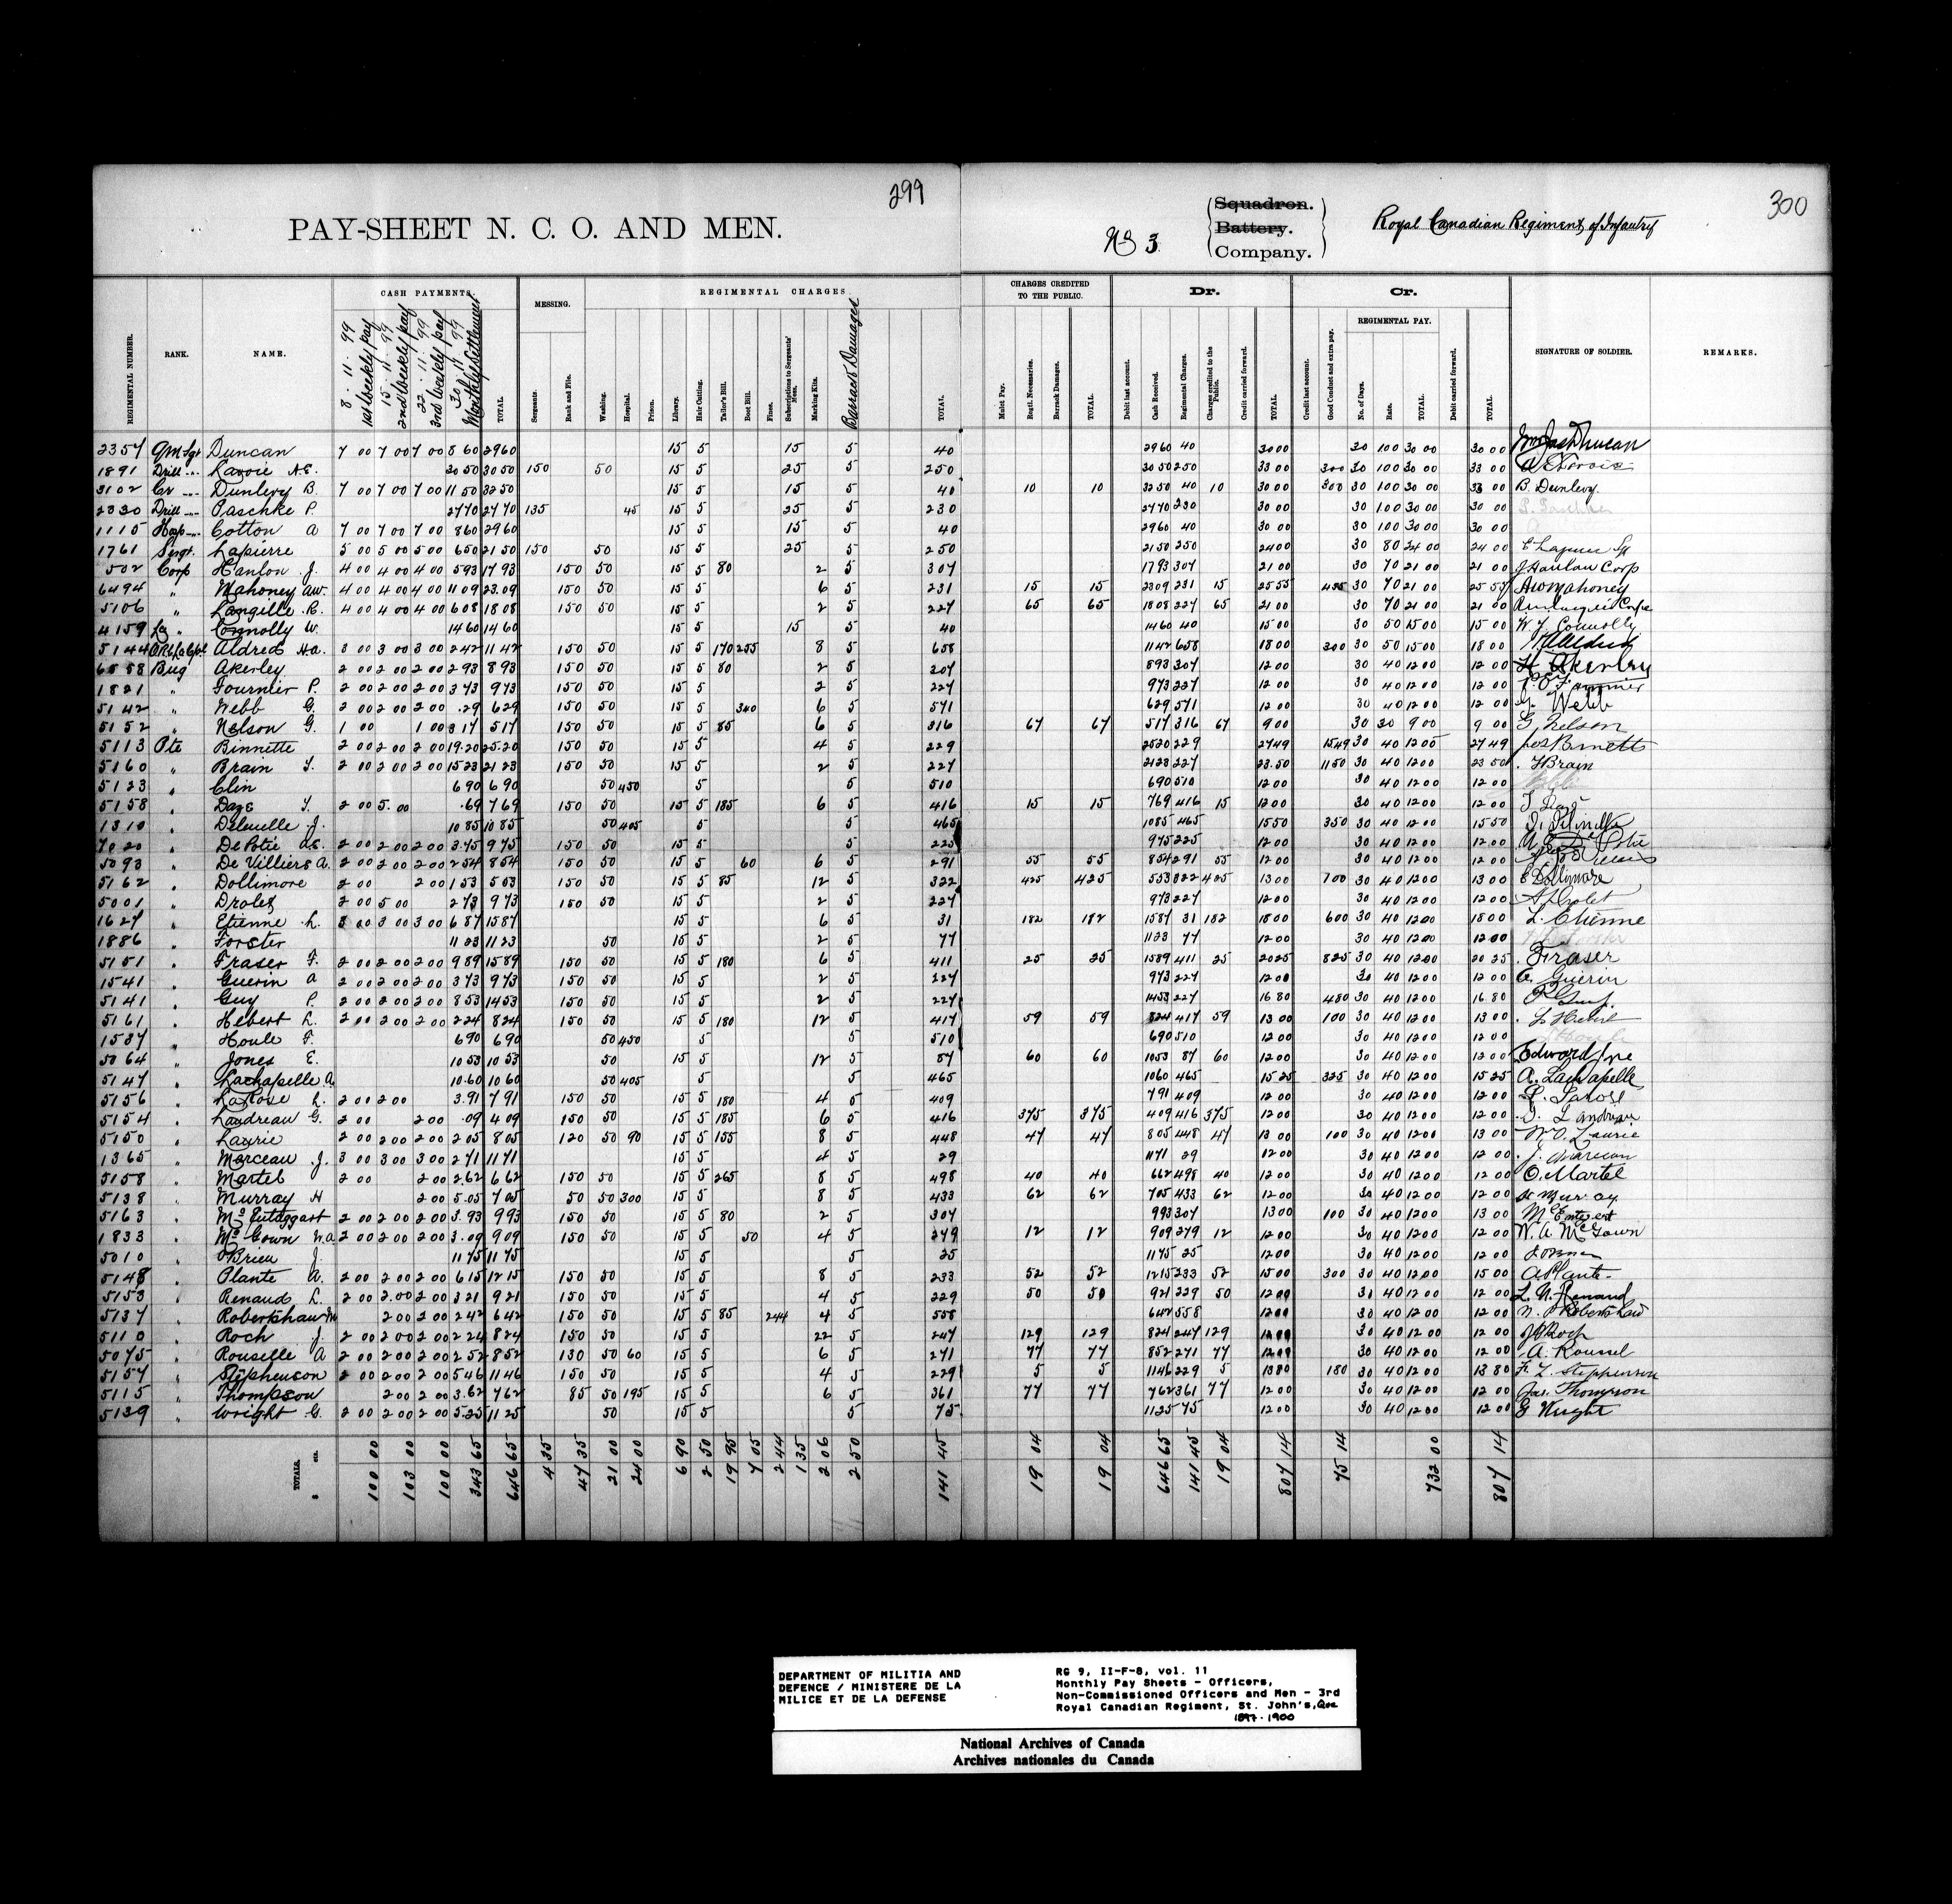 299
PAY-SHEET N. C. O. AND MEN.
300
No 3.
Squadron.
Battery.
Company.
Royal Canadian Regiment of Infantry
REGIMENTAL NUMBER. RANK. NAME. CASH PAYMENTS. MESSING. REGIMENTAL CHARGES
8. 11. 99 1st Weekly pay 15. 11. 99 2nd Weekly pay 22. 11. 99 3rd Weekly pay 30. 11. 99 Monthly Settlement TOTAL. Sergeants. Rank and File. Washing. Hospital. Prison. Library. Hair Cutting. Tailor's Bill. Boot Bill. Fines. Subscriptions to Sergeants' Mess. Marking Kits. Barrack Damages TOTAL.
CHARGES CREDITED TO THE PUBLIC. Dr. Cr. REGIMENTAL PAY. SIGNATURE OF SOLDIER. REMARKS.
Mulct Pay. Regtl. Necessaries. Barrack Damages. TOTAL. Debit last account. Cash Received. Regimental Charges. Charges credited to the Public. Credit carried forward. TOTAL. Credit last account. Good Conduct and extra pay. No. of Days. Rate. TOTAL. Debit carried forward. TOTAL.
2357 QM Sgt Duncan 7 00 7 00 7 00 8 60 29 60 15 5 15 5 40 29 60 40 30 00 30 1 00 30 00 30 00
1891 Drill " Lavoie A.E. 30 50 30 50 1 50 50 15 5 25 5 2 50 30 50 2 50 33 00 3 00 30 1 00 30 00 33 00
3102 Cr " Dunlevy B. 7 00 7 00 7 00 11 50 32 50 15 5 15 5 40 10 10 32 50 40 10 33 00 3 00 30 1 00 30 00 33 00 B. Dunlevy.
2330 Drill " Paschke P. 27 70 27 70 1 35 45 15 5 25 5 2 30 27 70 2 30 30 00 30 1 00 30 00 30 00
1115 Hosp " Cotton A 7 00 7 00 7 00 8 60 29 60 15 5 15 5 40 29 60 40 30 00 30 1 00 30 00 30 00
1761 Sergt. Lapierre 5 00 5 00 5 00 6 50 21 50 1 50 50 15 5 25 5 2 50 21 50 2 50 24 00 30 80 24 00 24 00
502 Corp Hanlon J. 4 00 4 00 4 00 5 93 17 93 1 50 50 15 5 80 2 5 3 07 17 93 3 07 21 00 30 70 21 00 21 00 J Hanlon Corp
6494 " Mahoney AW. 4 00 4 00 4 00 11 09 23.09 1 50 50 15 5 6 5 2 31 15 15 23 09 2 31 15 25 55 4 55 30 70 21 00 25 55 AW Mahoney
5106 " Langille R. 4 00 4 00 4 00 6 08 18 08 1 50 50 15 5 2 5 2 27 65 65 18 08 2 27 65 21 00 30 70 21 00 21 00
4159 La " Connolly W. 14 60 14 60 15 5 15 5 40 14 60 40 15 00 30 50 15 00 15 00 W J Connolly
5144 Aldred H.A. 3 00 3 00 3 00 2 42 11 42 1 50 50 15 5 1 70 2 55 8 5 6 58 11 42 6 58 18 00 3 00 30 50 15 00 18 00
6558 Bug Akerley 2 00 2 00 2 00 2 93 8 93 1 50 50 15 5 80 2 5 3 07 8 93 3 07 12 00 30 40 12 00 12 00 H Akerley
1821 " Fournier P. 2 00 2 00 2 00 3 73 9 73 1 50 50 15 5 2 5 2 27 9 73 2 27 12 00 30 40 12 00 12 00
5142 " Webb G. 2 00 2 00 2 00 .29 6 29 1 50 50 15 5 3 40 6 5 5 71 6 29 5 71 12 00 30 40 12 00 12 00 G. Webb
5152 " Nelson G. 1 00 1 00 3 17 5 17 1 50 50 15 5 85 6 5 3 16 67 67 5 17 3 16 67 9 00 30 30 9 00 9 00 G Nelson
5113 Pte Binnette 2 00 2 00 2 00 19.20 25.20 1 50 50 15 5 4 5 2 29 25 20 2 29 27 49 15 49 30 40 12 00 27 49
5160 " Brain T. 2 00 2 00 2 00 15 23 21 23 1 50 50 15 5 2 5 2 27 21 23 2 27 23.50 11 50 30 40 12 00 23 50 Brain
5123 " Clin 6 90 6 90 50 4 50 5 5 5 10 6 90 5 10 12 00 30 40 12 00 12 00
5158 " Daze T. 2 00 5. 00 .69 7 69 1 50 50 15 5 1 85 6 5 4 16 15 15 7 69 4 16 15 12 00 30 40 12 00 12 00
1310 " Delenelle J. 10 85 10 85 50 4 05 5 5 4 65 10 85 4 65 15 50 3 50 30 40 12 00 15 50
7020 " DePotie A.E. 2 00 2 00 2 00 3.75 9 75 1 50 50 15 5 5 2 25 9 75 2 25 12 00 30 40 12 00 12 00
5093 " De Villiers A. 2 00 2 00 2 00 2 54 8 54 1 50 50 15 5 60 6 5 2 91 55 55 8 54 2 91 55 12 00 30 40 12 00 12 00
5162 " Dollimore 2 00 2 00 1 53 5 53 1 50 50 15 5 85 12 5 3 22 4 25 4 25 5 53 3 22 4 25 13 00 1 00 30 40 12 00 13 00 E Dollimore
5001 " Drolet 2 00 5 00 2 73 9 73 1 50 50 15 5 2 5 2 27 9 73 2 27 12 00 30 40 12 00 12 00 Drolet
1627 " Etienne L. 3 00 3 00 3 00 6 87 15 87 15 5 6 5 31 1 82 1 82 15 87 31 1 82 18 00 6 00 30 40 12 00 18 00 L. Etienne
1886 " Forster 11 23 11 23 50 15 5 2 5 77 11 23 77 12 00 30 40 12 00 12 00
5151 " Fraser F. 2 00 2 00 2 00 9 89 15 89 1 50 50 15 5 1 80 6 5 4 11 25 25 15 89 4 11 25 20 25 8 25 30 40 12 00 20 25 Fraser
1541 " Guerin A 2 00 2 00 2 00 3 73 9 73 1 50 50 15 5 2 5 2 27 9 73 2 27 12 00 30 40 12 00 12 00 Guerin
5141 " Guy P. 2 00 2 00 2 00 8 53 14 53 1 50 50 15 5 2 5 2 27 14 53 2 27 16 80 4 80 30 40 12 00 16 80
5161 " Hebert L. 2 00 2 00 2 00 2 24 8 24 1 50 50 15 5 1 80 12 5 4 17 59 59 8 24 4 17 59 13 00 1 00 30 40 12 00 13 00 L Hebert
1537 " Houle F. 6 90 6 90 50 4 50 5 5 5 10 6 90 5 10 12 00 30 40 12 00 12 00
5064 " Jones E. 10 53 10 53 50 15 5 12 5 87 60 60 10 53 87 60 12 00 30 40 12 00 12 00 Edward
5147 " Lachapelle A. 10.60 10 60 50 4 05 5 5 4 65 10 60 4 65 15 25 3 25 30 40 12 00 15 25 A. Lachapelle
5156 " LaRose L. 2 00 2 00 3.91 7 91 1 50 50 15 5 1 80 4 5 4 09 7 91 4 09 12 00 30 40 12 00 12 00
5154 " Landreau G. 2 00 2 00 .09 4 09 1 50 50 15 5 1 85 6 5 4 16 3 75 3 75 4 09 4 16 3 75 12 00 30 40 12 00 12 00
5150 " Laurie 2 00 2 00 2 00 2 05 8 05 1 20 50 90 15 5 1 55 8 5 4 48 47 47 8 05 4 48 47 13 00 1 00 30 40 12 00 13 00 Laurie
1365 " Marceau J. 3 00 3 00 3 00 2 71 11 71 15 5 4 5 29 11 71 29 12 00 30 40 12 00 12 00
5158 " Martel 2 00 2 00 2.62 6 62 1 50 50 15 5 2 65 8 5 4 98 40 40 6 62 4 98 40 12 00 30 40 12 00 12 00 O. Martel
5138 " Murray H 2 00 5.05 7 05 50 50 3 00 15 5 8 5 4 33 62 62 7 05 4 33 62 12 00 30 40 12 00 12 00 Murray
5163 " McEntaggart 2 00 2 00 2 00 3.93 9 93 1 50 50 15 5 80 2 5 3 07 9 93 3 07 13 00 1 00 30 40 12 00 13 00
1833 " McGown W.A 2 00 2 00 2 00 3.09 9 09 1 50 50 15 5 50 4 5 2 79 12 12 9 09 2 79 12 12 00 30 40 12 00 12 00 W. A McGown
5010 " O'Brien J. 11 75 11 75 15 5 5 25 11 75 25 12 00 30 40 12 00 12 00
5148 " Plante A. 2 00 2 00 2 00 6 15 12 15 1 50 50 15 5 8 5 2 33 52 52 12 15 2 33 52 15 00 3 00 30 40 12 00 15 00 A Plante
5153 " Renaud L. 2 00 2.00 2 00 3 21 9 21 1 50 50 15 5 4 5 2 29 50 50 9 21 2 29 50 12 00 30 40 12 00 12 00 L. N. Renaud
5137 " Robertshaw 2 00 2 00 2 42 6 42 1 50 50 15 5 85 2 44 4 5 5 58 6 42 5 58 12 00 30 40 12 00 12 00 Robertshaw
5110 " Roch J. 2 00 2 00 2 00 2 24 8 24 1 50 50 15 5 22 5 2 47 1 29 1 29 8 24 2 47 1 29 12 00 30 40 12 00 12 00 Roch
5075 " Rouselle A 2 00 2 00 2 00 2 52 8 52 1 30 50 60 15 5 6 5 2 71 77 77 8 52 2 71 77 12 00 30 40 12 00 12 00 A. Roussel
5157 " Stephenson 2 00 2 00 2 00 5 46 11 46 1 50 50 15 5 4 5 2 29 5 5 11 46 2 29 5 13 80 1 80 30 40 12 00 13 80 F. L. Stephenson
5115 " Thompson 2 00 2 00 3.62 7 62 85 50 1 95 15 5 6 5 3 61 77 77 7 62 3 61 77 12 00 30 40 12 00 12 00 Jas. Thompson
5139 " Wright G. 2 00 2 00 2 00 5.25 11 25 50 15 5 5 75 11 25 75 12 00 30 40 12 00 12 00 G Wright
TOTALS. $ cts. 100 00 103 00 100 00 343 65 646 65 4 35 47 35 21 00 24 00 6 90 2 50 19 95 7 05 2 44 1 35 2 06 2 50 141 45 19 04 19 04 646 65 141 45 19 04 807 14 75 14 732 00 807 14
DEPARTMENT OF MILITIA AND
DEFENCE / MINISTERE DE LA
MILICE ET DE LA DEFENSE
RG 9, II-F-8, vol. 11
Monthly Pay Sheets - Officers,
Non-Commissioned Officers and Men - 3rd
Royal Canadian Regiment, St. John's, Que
1897-1900
National Archives of Canada
Archives nationales du Canada